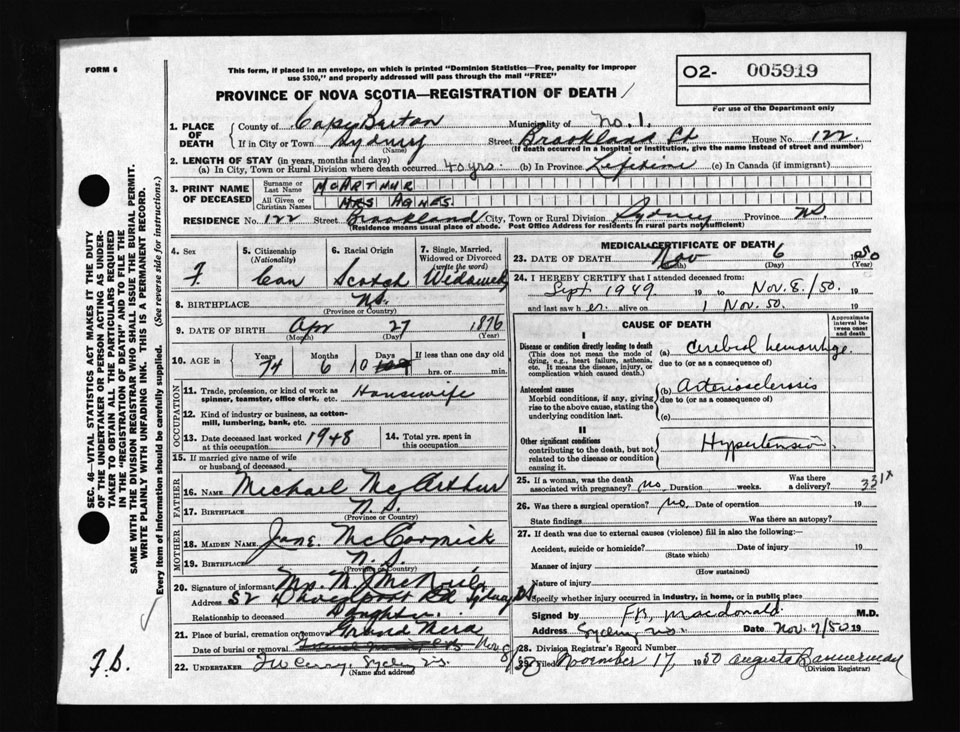 FORM 6
This form, if placed in an envelope, on which is printed "Dominion Statistics—Free, penalty for improper
use $300," and properly addressed will pass through the mail "FREE"
O2- 005919
For use of the Department only
PROVINCE OF NOVA SCOTIA—REGISTRATION OF DEATH
SEC. 46—VITAL STATISTICS ACT MAKES IT THE DUTY
OF THE UNDERTAKER OR PERSON ACTING AS UNDER-
TAKER TO OBTAIN ALL THE PARTICULARS REQUIRED
IN THE "REGISTRATION OF DEATH" AND TO FILE THE
SAME WITH THE DIVISION REGISTRAR WHO SHALL ISSUE THE BURIAL PERMIT.
WRITE PLAINLY WITH UNFADING INK. THIS IS A PERMANENT RECORD.
Every item of information should be carefully supplied. (See reverse side for instructions.)
1. PLACE OF DEATH
County of Cape Breton Municipality of No. 1.
If in City or Town Sydney (Name) Street Brookland St House No. 122.
(If death occurred in a hospital or institution, give the name instead of street and number)
2. LENGTH OF STAY (in years, months and days)
(a) In City, Town or Rural Division where death occurred 40 yrs. (b) In Province Lifetime (c) In Canada (if immigrant)
3. PRINT NAME OF DECEASED
Surname or Last Name McARTHUR
All Given or Christian Names MRS AGNES
RESIDENCE No. 122 Street Brookland City, Town or Rural Division Sydney Province NS
(Residence means usual place of abode. Post Office Address for residents in rural parts not sufficient)
4. Sex F.
5. Citizenship (Nationality) Can
6. Racial Origin Scotch
7. Single, Married, Widowed or Divorced (write the word) Widowed
8. BIRTHPLACE N.S. (Province or Country)
9. DATE OF BIRTH Apr (Month) 27 (Day) 1876 (Year)
10. AGE in Years 74 Months 6 Days 10 If less than one day old hrs. or min.
OCCUPATION
11. Trade, profession, or kind of work as spinner, teamster, office clerk, etc. Housewife
12. Kind of industry or business, as cotton-mill, lumbering, bank, etc.
13. Date deceased last worked at this occupation 1948
14. Total yrs. spent in this occupation
15. If married give name of wife or husband of deceased
FATHER
16. NAME Michael McArthur
17. BIRTHPLACE N.S. (Province or Country)
MOTHER
18. MAIDEN NAME Jane McCormick
19. BIRTHPLACE N.S. (Province or Country)
20. Signature of informant Mrs. M. J. McNeil
Address 52 Davenport Rd Sydney NS
Relationship to deceased Daughter.
21. Place of burial, cremation or removal Grand Mira
Date of burial or removal Nov. 8/50
22. UNDERTAKER Sydney N.S. (Name and address)
F.B.
MEDICAL CERTIFICATE OF DEATH
23. DATE OF DEATH Nov (Month) 6 (Day) 1950 (Year)
24. I HEREBY CERTIFY that I attended deceased from:
Sept 1949 19 to Nov. 8./50. 19
and last saw h er. alive on 1 Nov. 50. 19
CAUSE OF DEATH
Approximate interval between onset and death
I
Disease or condition directly leading to death
(This does not mean the mode of dying, e.g., heart failure, asthenia, etc. It means the disease, injury, or complication which caused death.)
(a) Cerebral hemorrhage.
due to (or as a consequence of)
Antecedent causes
Morbid conditions, if any, giving rise to the above cause, stating the underlying condition last.
(b) Arteriosclerosis
due to (or as a consequence of)
(c)
II
Other significant conditions
contributing to the death, but not related to the disease or condition causing it.
Hypertension.
25. If a woman, was the death associated with pregnancy? no. Duration weeks. Was there a delivery? 331x
26. Was there a surgical operation? no. Date of operation 19
State findings Was there an autopsy?
27. If death was due to external causes (violence) fill in also the following:—
Accident, suicide or homicide? Date of injury 19
(State which)
Manner of injury
(How sustained)
Nature of injury
Specify whether injury occurred in industry, in home, or in public place
Signed by F.B. Macdonald. M.D.
Address Sydney N.S. Date Nov. 7/50 19
28. Division Registrar's Record Number
29. Filed November 17, 1950 Augusta Bannerman
(Division Registrar)